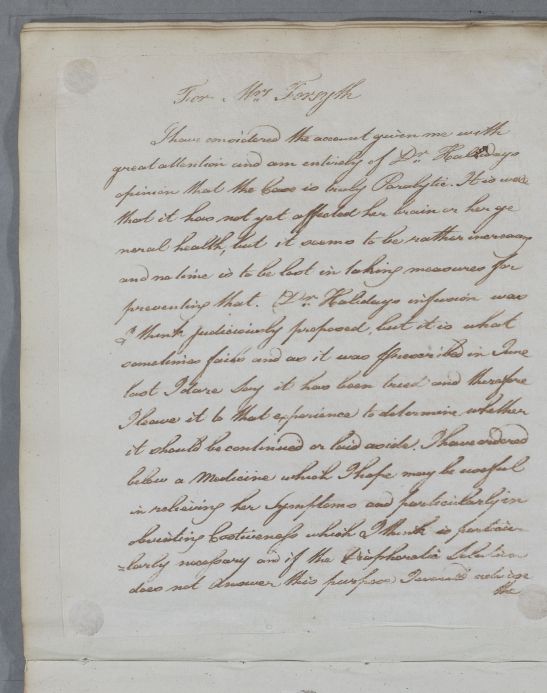 For Mrs Forsyth
I have considered the account given me with
great attention and am entirely of Dr. Halidays
opinion that the Case is truly Paralytic. It is well
that it has not yet affected her brain or her ge
neral health, but it seems to be rather increasing
and no time is to be lost in taking measures for
preventing that. Dr. Halidays infusion was
I think judiciously proposed, but it is what
sometimes fails and as it was prescribed in June
last I dare say it has been tried and therefore
I leave it to that experience to determine whether
it should be continued or laid aside. I have ordered
below a Medicine which I hope may be useful
in relieving her Symptoms and particularly in
obviating Costiveness which I think is particu
=larly necessary and if the Diaphoretic Solution
does not answer this purpose I would advise
the